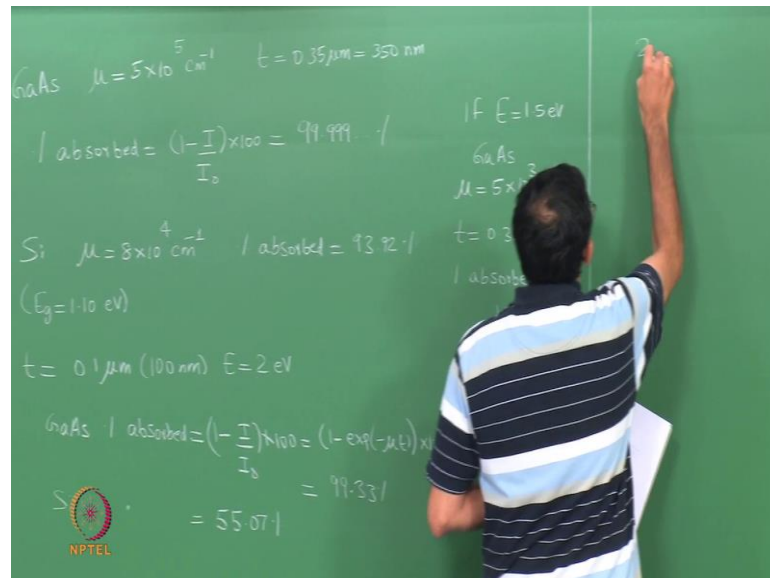 GaAs μ = 5×10⁵ cm⁻¹ t = 0.35μm = 350 nm
% absorbed = (1 - I/I₀)×100 = 99.999...%
Si μ = 8×10⁴ cm⁻¹ % absorbed = 93.92%
(Eg = 1.10 eV)
t = 0.1 μm (100 nm) E = 2 eV
GaAs % absorbed = (1 - I/I₀)×100 = (1 - exp(-μt))×1
= 99.33%
S
= 55.07%
If E = 1.5 eV
GaAs
μ = 5×10³
t = 0.3
% absorbe
2
NPTEL